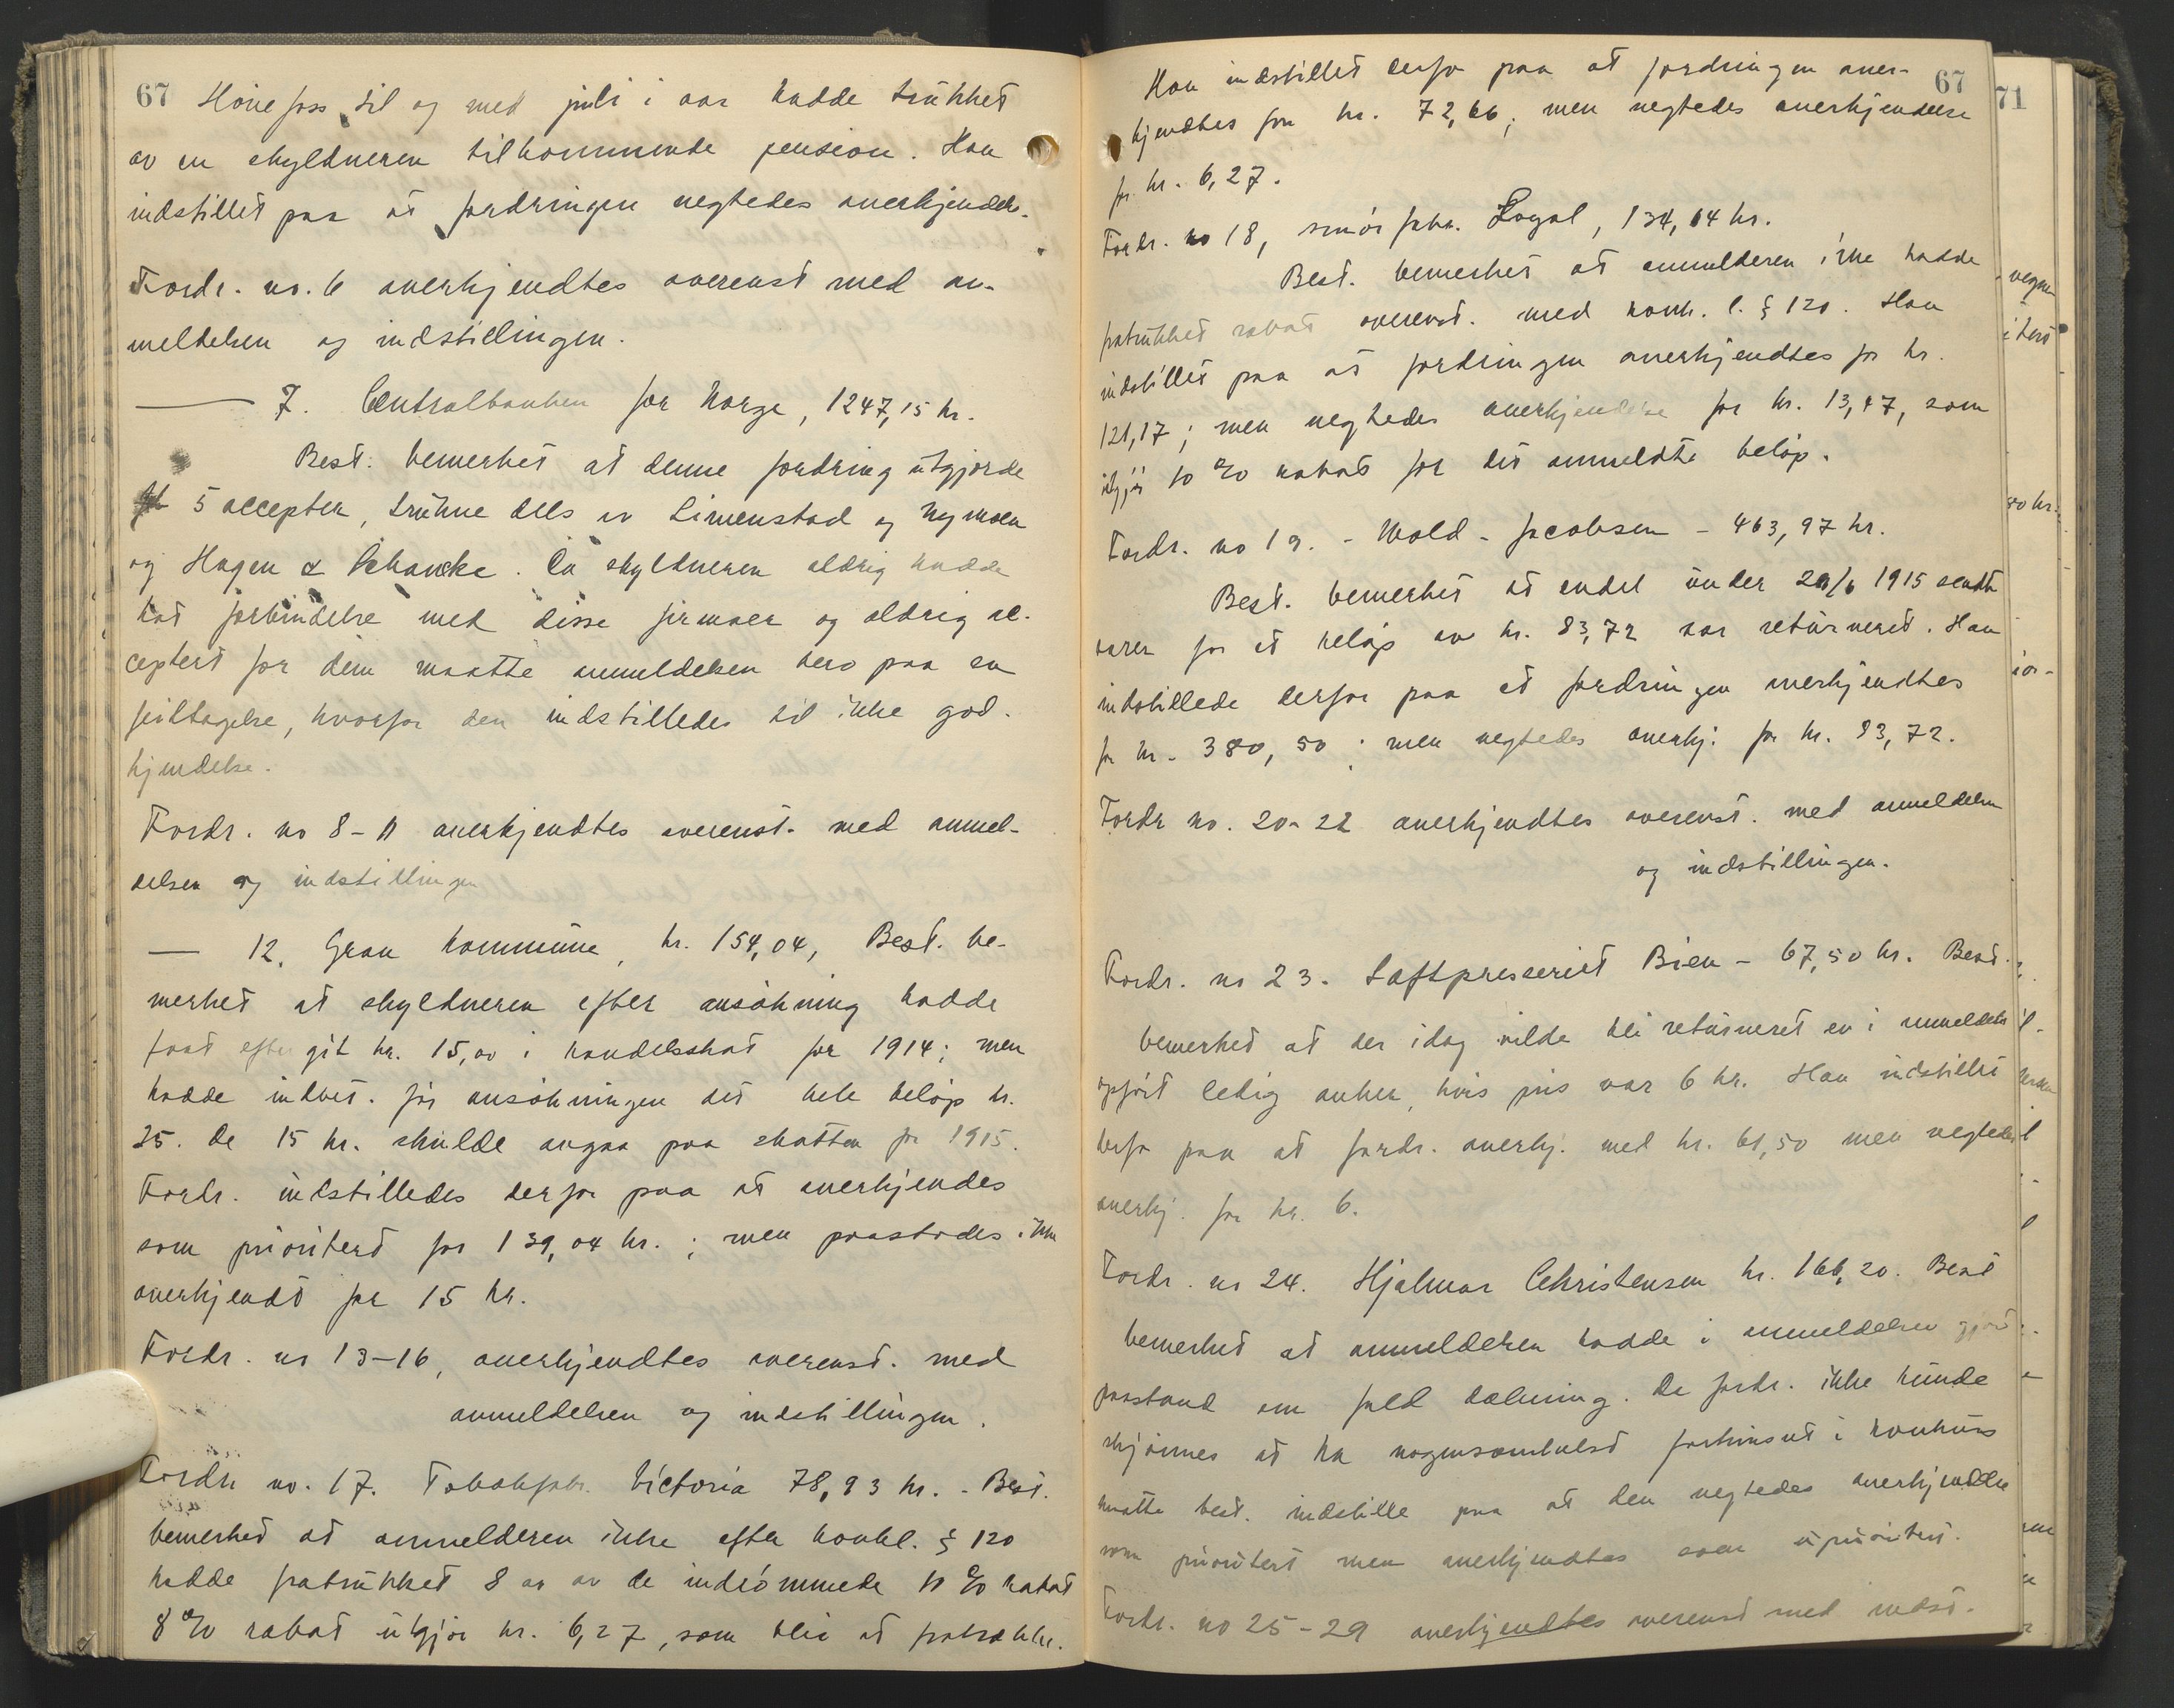 67 Hönefoss til og med juli i aar hadde trukket
av en skyldneren tilkommende pension. Han
indstillet paa at fordringen negtedes anerkjendels.
Fordr. no. 6 anerkjendtes overenst med an-
meldelsen og indstillingen.
— 7. Centralbanken for Norge, 1247,15 kr.
Best. bemerket at denne fordring utgjorde
5 accepter, trukne dels av Simenstad og Nymoen
og Hagen & Schancke. Da skyldneren aldrig hadde
hat forbindelse med disse firmaer og aldrig ac-
ceptert for dem maatte anmeldelsen bero paa en
feiltagelse, hvorfor den indstilledes til ikke god-
kjendelse.
Fordr. no 8-11 anerkjendtes overenst. med anmel-
delsen og indstillingen
— 12. Gran kommune, kr. 154,04, Best. be-
merket at skyldneren efter ansökning hadde
faat eftergit kr. 15,00 i handelsskat for 1914; men
hadde indbet. för ansökningen det hele belöp kr.
25. De 15 kr. skulde avgaa paa skatten for 1915.
Fordr. indstilledes derfor paa at anerkjendes
som prioritert for 139,04 kr.; men paastodes ikke
anerkjendt for 15 kr.
Fordr. no 13-16, anerkjendtes overenst. med
anmeldelsen og indstillingen.
Fordr no. 17. Tobaksfabr. Victoria 78,93 kr. - Best.
bemerket at anmelderen ikke efter konkl. § 120
hadde fratrukket 8 % av de indrömmede 10 % rabat
8 % rabat utgjör kr. 6,27, som blir at fratrække.
67
Han indstillet derfor paa at fordringen aner-
kjendtes for kr. 72,66; men negtedes anerkjendelse
for kr. 6,27.
Fordr. no 18, smörfabr. Loyal, 134,64 kr.
Best. bemerket at anmelderen ikke hadde
fratrukket rabat overenst. med konk. l. § 120. Han
indstillet paa at fordringen anerkjendtes for kr.
121,17; men negtedes anerkjendelse for kr. 13,47, som
utgjör 10 % rabat for det anmeldte belöp.
Fordr. no 19. - Wold-Jacobsen - 463,97 kr.
Best. bemerket at endel under 29/6 1915 sendte
varer for et belöp av kr. 83,72 var returneret. Han
indstillede derfor paa at fordringen anerkjendtes
for kr. 380,50; men negtedes anerkj. for kr. 83,72.
Fordr no. 20-22 anerkjendtes overenst. med anmeldelsen
og indstillingen.
Fordr. no 23. Saftpresseriet Bien - 67,50 kr. Best.
bemerket at der idag vilde bli returneret en i anmeldelsen
opfört ledig anker, hvis pris var 6 kr. Han indstillet
derfor paa at fordr. anerkj. med kr. 61,50 men negtedes
anerkj. for kr. 6.
Fordr. no 24. Hjalmar Christensen kr. 166,20. Best
bemerket at anmelderen hadde i anmeldelsen gjort
paastand om fuld dækning. Da fordr. ikke kunde
skjönnes at ha nogensomhelst fortrinsret i konkurs
maatte best. indstille paa at den negtedes anerkjendelse
som prioritert men anerkjendtes som uprioritert.
Fordr. no 25-29 anerkjendtes overenst med indst.
71